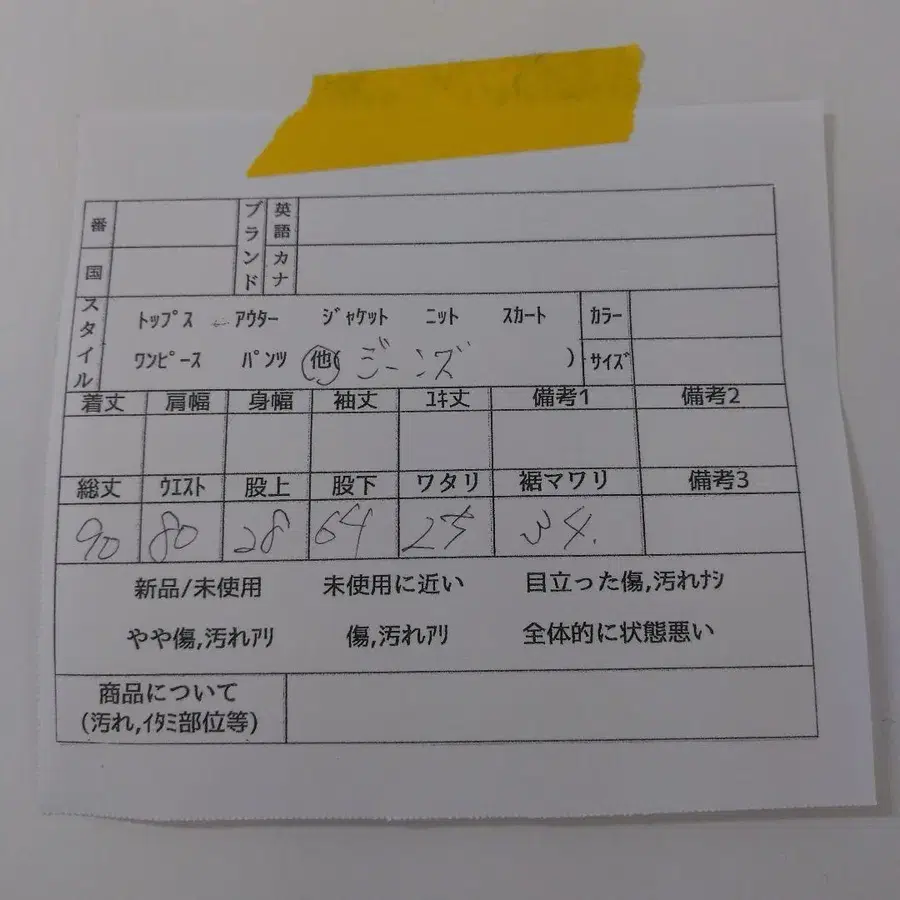 番 ブランド 英語
国 カナ
スタイル トップス アウター ジャケット ニット スカート カラー
ワンピース パンツ (他) ジーンズ ) サイズ
着丈 肩幅 身幅 袖丈 ユキ丈 備考1 備考2
総丈 ウエスト 股上 股下 ワタリ 裾マワリ 備考3
90 80 28 64 25 34.
新品/未使用 未使用に近い 目立った傷,汚れナシ
やや傷,汚れアリ 傷,汚れアリ 全体的に状態悪い
商品について
(汚れ,イタミ部位等)